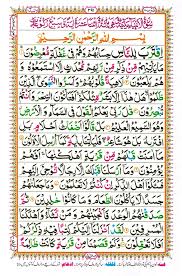 بسم الله الرحمن الرحيم
اِقْتَرَبَ لِلنَّاسِ حِسَابُهُمْ وَهُمْ فِيْ غَفْلَةٍ مُّعْرِضُوْنَ
مَا يَاْتِيْهِمْ مِّنْ ذِكْرٍ مِّنْ رَّبِّهِمْ مُّحْدَثٍ اِلَّا اسْتَمَعُوْهُ وَ
هُمْ يَلْعَبُوْنَ لَاهِيَةً قُلُوْبُهُمْ وَاَسَرُّوا النَّجْوَى الَّذِيْنَ
ظَلَمُوْا هَلْ هٰذَا اِلَّا بَشَرٌ مِّثْلُكُمْ اَفَتَاْتُوْنَ السِّحْرَ وَاَنْتُمْ
تُبْصِرُوْنَ قٰلَ رَبِّيْ يَعْلَمُ الْقَوْلَ فِي السَّمَآءِ وَالْاَرْضِ
وَهُوَ السَّمِيْعُ الْعَلِيْمُ بَلْ قَالُوْٓا اَضْغَاثُ اَحْلَامٍ بَلِ افْتَرٰىهُ
بَلْ هُوَ شَاعِرٌ فَلْيَاْتِنَا بِاٰيَةٍ كَمَآ اُرْسِلَ الْاَوَّلُوْنَ
مَآ اٰمَنَتْ قَبْلَهُمْ مِّنْ قَرْيَةٍ اَهْلَكْنٰهَا اَفَهُمْ
يُؤْمِنُوْنَ وَمَآ اَرْسَلْنَا قَبْلَكَ اِلَّا رِجَالًا نُّوْحِيْٓ اِلَيْهِمْ
فَسْـَٔلُوْٓا اَهْلَ الذِّكْرِ اِنْ كُنْتُمْ لَا تَعْلَمُوْنَ وَمَا جَعَلْنٰهُمْ
جَسَدًا لَّا يَاْكُلُوْنَ الطَّعَامَ وَمَا كَانُوْا خٰلِدِيْنَ ثُمَّ
صَدَقْنٰهُمُ الْوَعْدَ فَاَنْجَيْنٰهُمْ وَمَنْ نَّشَآءُ وَاَهْلَكْنَا
الْمُسْرِفِيْنَ لَقَدْ اَنْزَلْنَآ اِلَيْكُمْ كِتٰبًا فِيْهِ ذِكْرُكُمْ اَفَلَا
تَعْقِلُوْنَ وَكَمْ قَصَمْنَا مِنْ قَرْيَةٍ كَانَتْ ظَالِمَةً